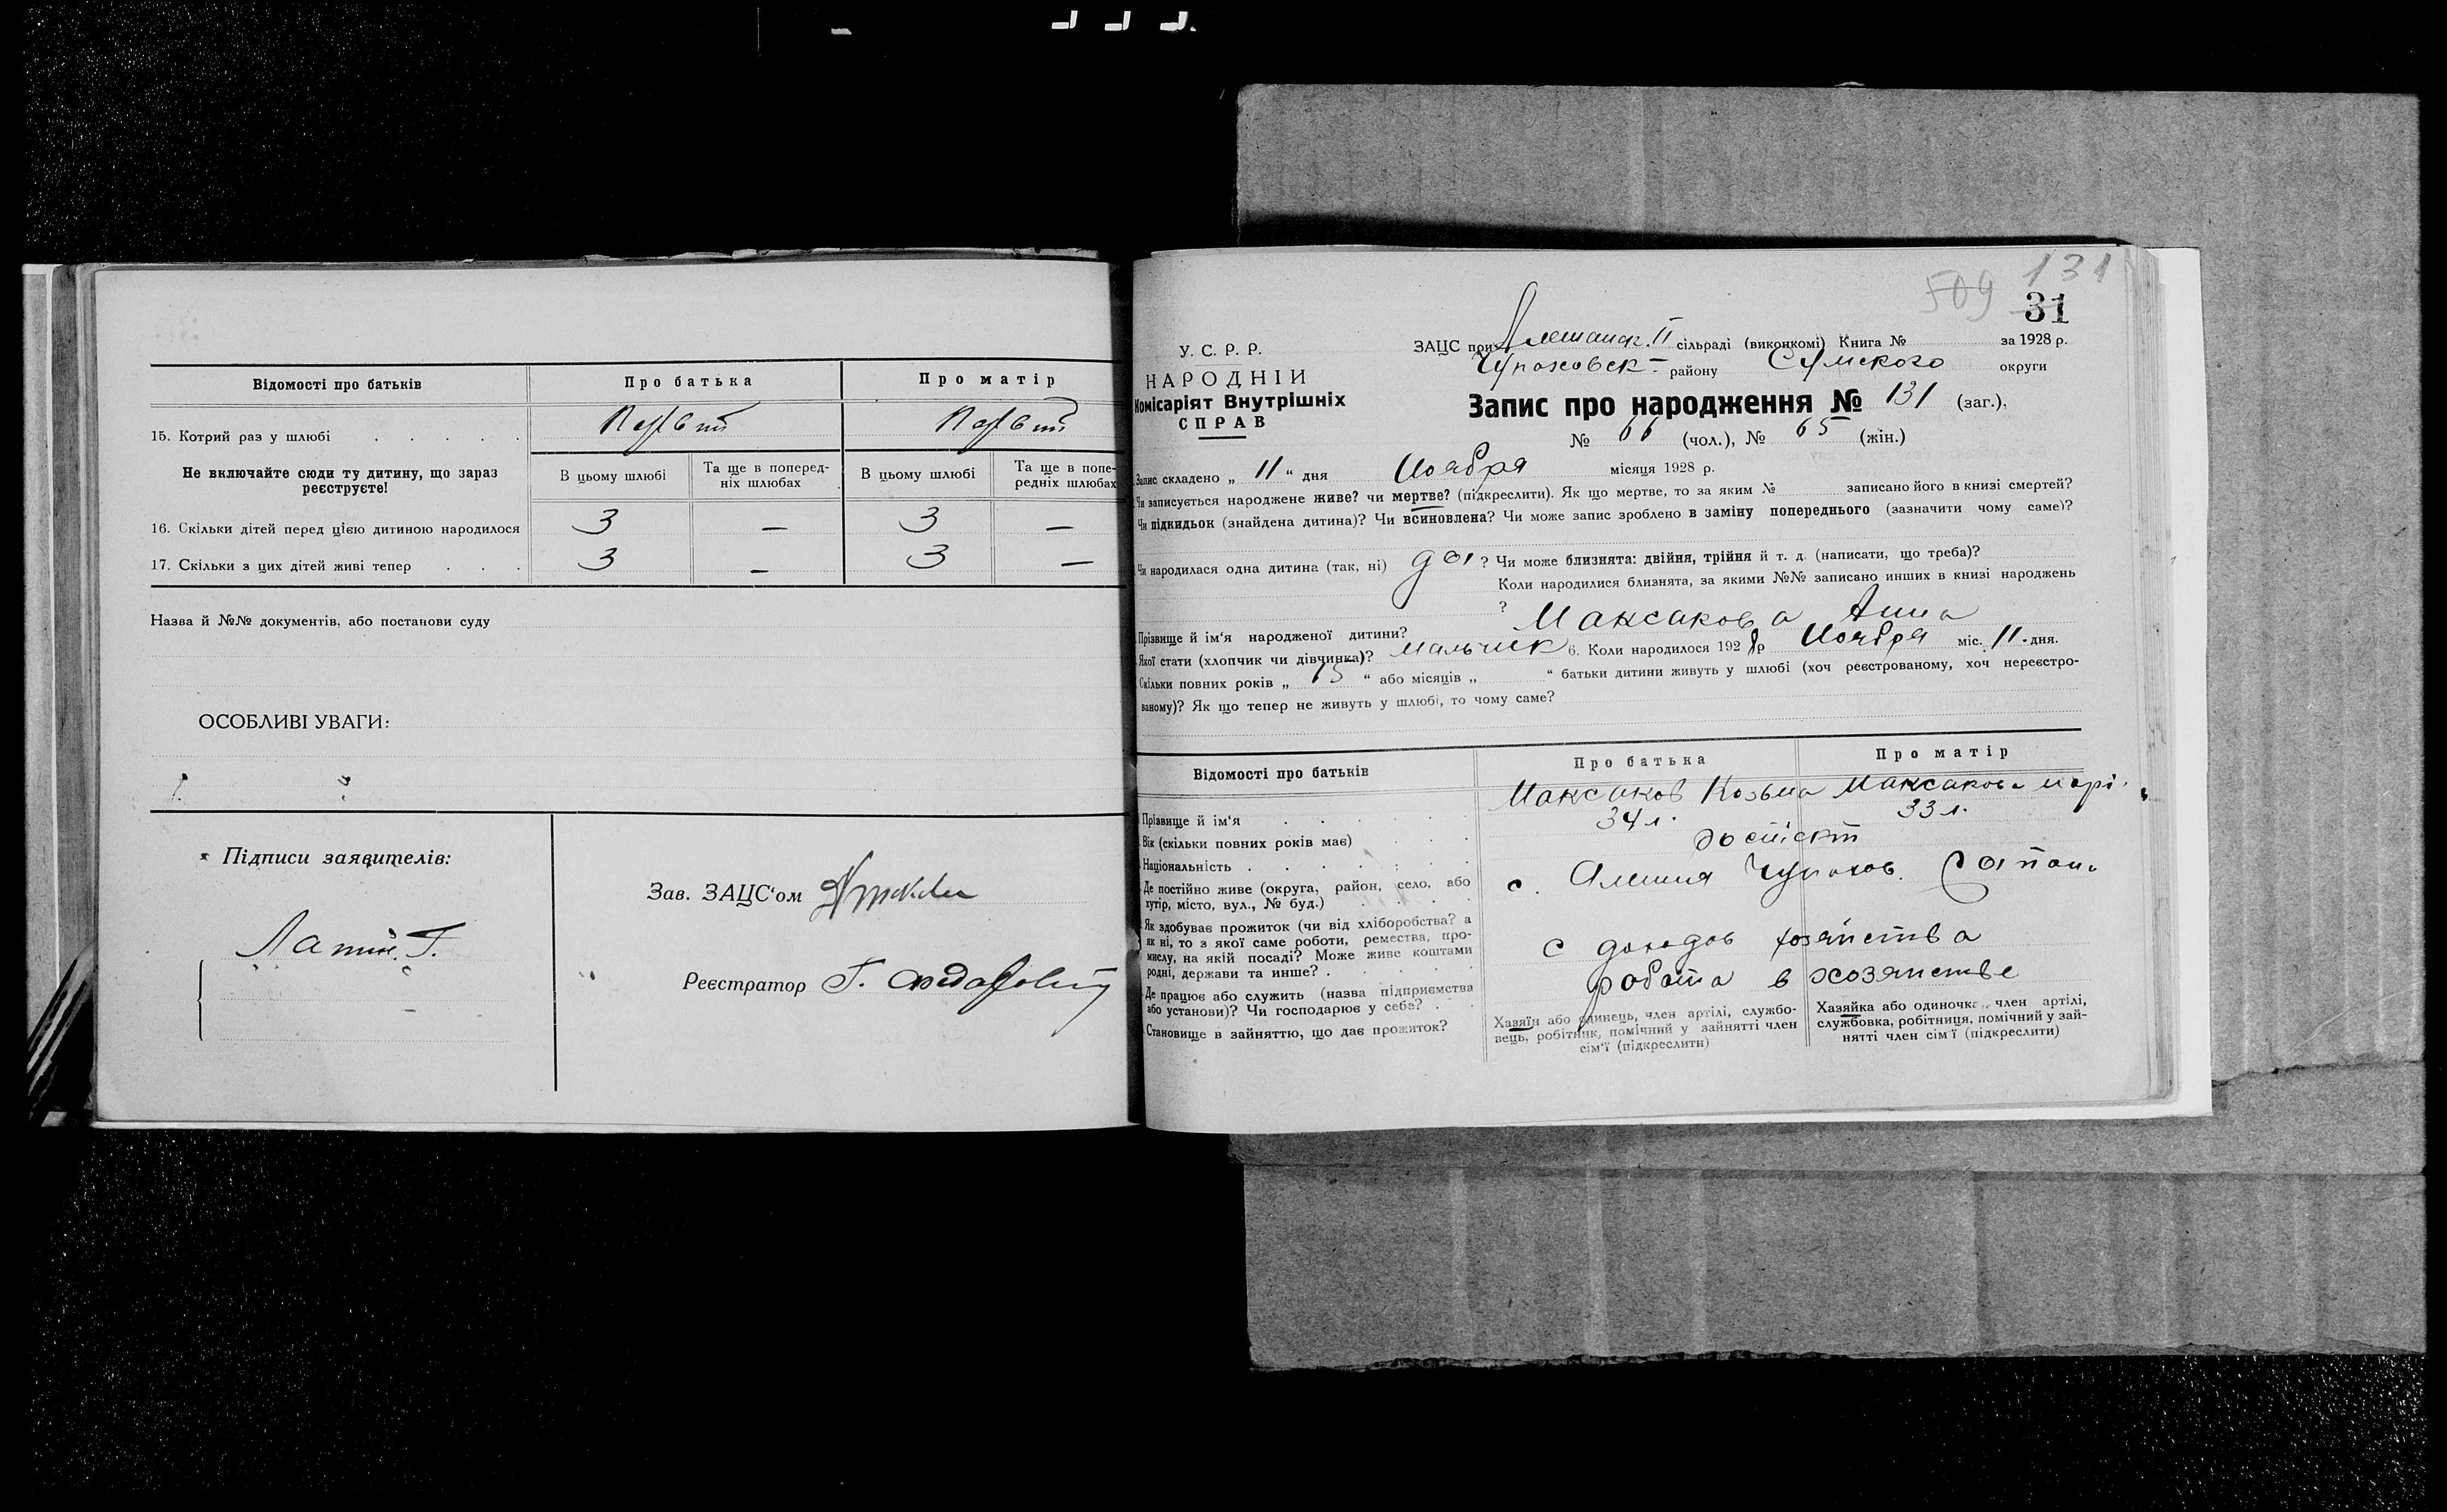 Відомості про батьків
Про батька
Про матір
15. Котрий раз у шлюбі . . . . .
Первый
Первый
Не включайте сюди ту дитину, що зараз
реєструєте!
В цьому шлюбі
Та ще в поперед-
ніх шлюбах
В цьому шлюбі
Та ще в попе-
редніх шлюбах
16. Скільки дітей перед цією дитиною народилося
3 — 3 —
17. Скільки з цих дітей живі тепер . . .
3 — 3 —
Назва й №№ документів, або постанови суду
ОСОБЛИВІ УВАГИ:
Підписи заявителів:
Зав. ЗАЦС'ом
Реєстратор Г.
509 131
31
У. С. Р. Р.
НАРОДНІЙ
Комісаріят Внутрішніх
СПРАВ
ЗАЦС при Алешанск. II сільраді (виконкомі) Книга № за 1928 р.
Чупаховск- району Сумского округи
Запис про народження № 131 (заг.),
№ 66 (чол.), № 65 (жін.)
Запис складено „ 11 “ дня Ноября місяця 1928 р.
Чи записується народжене живе? чи мертве? (підкреслити). Як що мертве, то за яким № записано його в книзі смертей?
Чи підкидьок (знайдена дитина)? Чи всиновлена? Чи може запис зроблено в заміну попереднього (зазначити чому саме)?
Чи народилася одна дитина (так, ні) да ? Чи може близнята: двійня, трійня й т. д. (написати, що треба)?
Коли народилися близнята, за якими №№ записано инших в книзі народжень
?
Прізвище й ім'я народженої дитини? Максакова Анна
Якої стати (хлопчик чи дівчинка)? мальчик 6. Коли народилося 1928 р Ноября міс. 11 дня.
Скільки повних років „ 15 “ або місяців „ “ батьки дитини живуть у шлюбі (хоч реєстрованому, хоч нереєстро-
ваному)? Як що тепер не живуть у шлюбі, то чому саме?
Відомості про батьків
Про батька
Про матір
Прізвище й ім'я . . . . . .
Максаков Козьма Максакова Марі
Вік (скільки повних років має) . . .
34 л. 33 л.
Національність . . . . . . .
Де постійно живе (округа, район, село, або
хутір, місто, вул., № буд.) . . . .
с. Алешня Чупахов.
Як здобуває прожиток (чи від хліборобства? а
як ні, то з якої саме роботи, ремества, про-
мислу, на якій посаді? Може живе коштами
родні, держави та инше? . . . .
с доходов хозяйства
Де працює або служить (назва підприємства
або установи)? Чи господарює у себе? . .
работа в хозяйстве
Становище в зайняттю, що дає прожиток?
Хазяїн або одинець, член артілі, службо-
вець, робітник, помічний у зайнятті член
сім'ї (підкреслити)
Хазяйка або одиночка, член артілі,
службовка, робітниця, помічний у зай-
нятті член сім'ї (підкреслити)